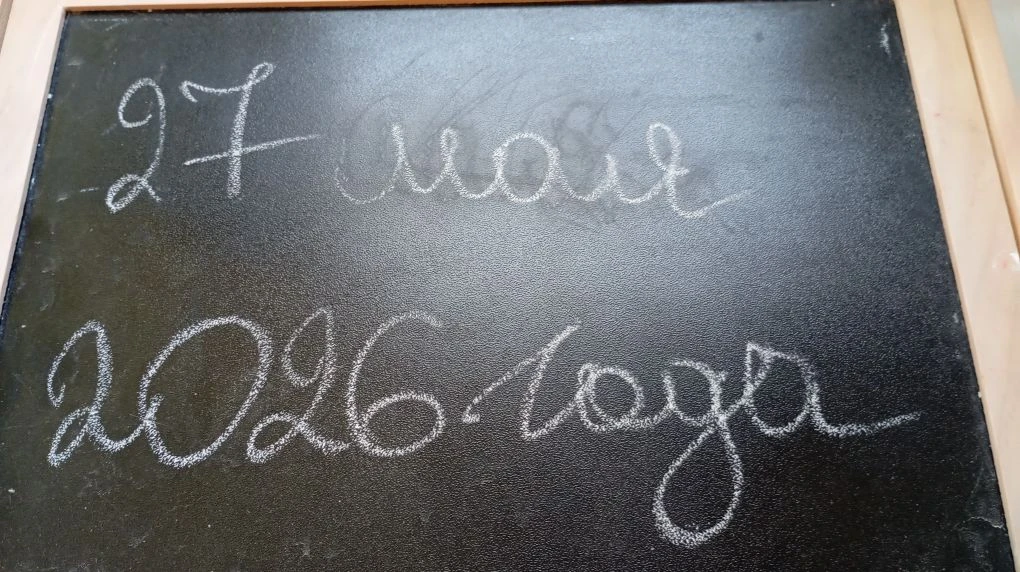 27 мая
2026 года